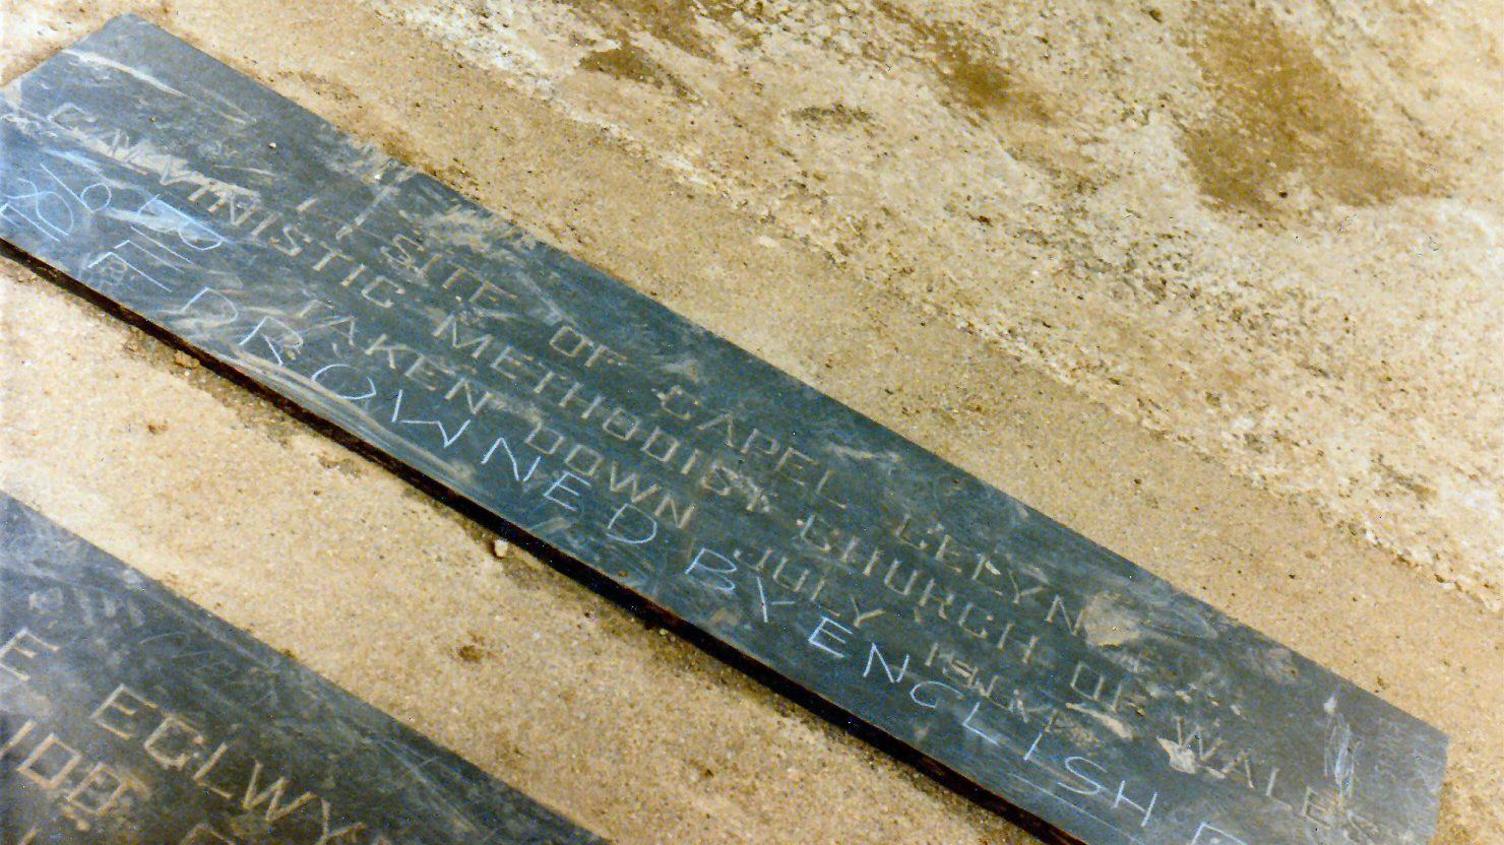 SITE OF CAPEL CELYN
CALVINISTIC METHODIST CHURCH OF WALES
TAKEN DOWN JULY
DROWNED BY ENGLISH
E EGLWY